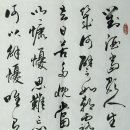 對酒當歌人生
幾何譬如朝露
去日苦多慨當
以慷憂思難忘
何以解憂唯有